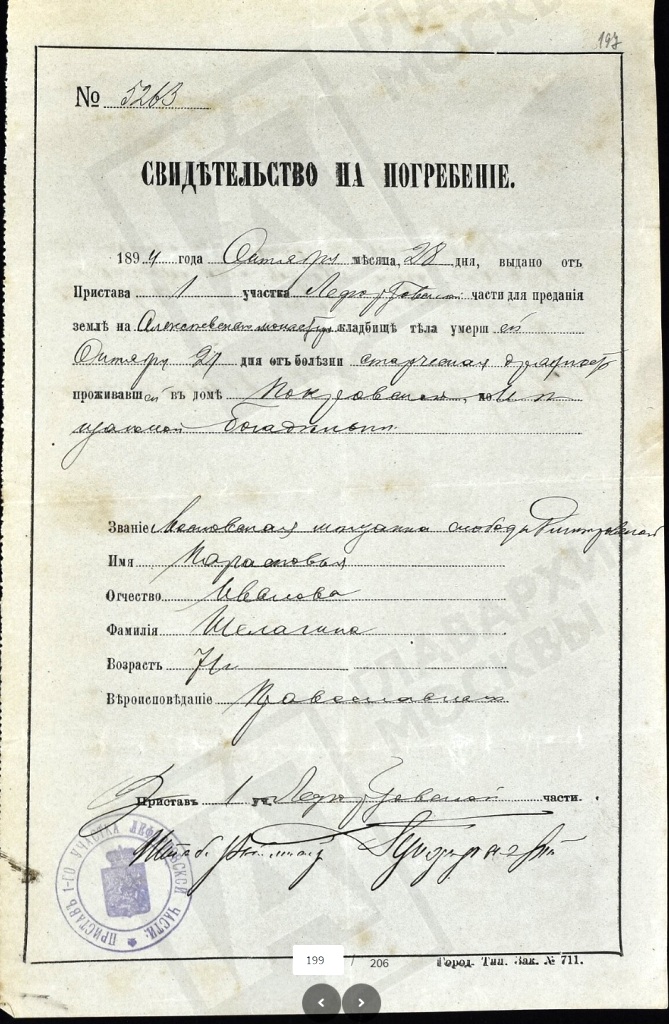 197
№ 5263
СВИДѢТЕЛЬСТВО НА ПОГРЕБЕНІЕ.
1894 года Октября мѣсяца, 28 дня, выдано отъ
Пристава 1 участка Лефортовской части для преданія
землѣ на Алексѣевскаго монастыря кладбищѣ тѣла умерш ей
Октября 27 дня отъ болѣзни старческая дряхлость
проживавш ей въ домѣ Покровской,
богадѣльни
Званіе Московская мѣщанка слободы
Имя Парасковья
Отчество Иванова
Фамилія Шелагина
Возрастъ 71 г
Вѣроисповѣданіе Православнаго
Приставъ 1 уч. Лефортовской части.
ПРИСТАВЪ 1-ГО УЧАСТКА ЛЕФОРТОВСКОЙ ЧАСТИ
Город. Тип. Зак. № 711.
199 / 206
ГЛАВАРХИВ МОСКВЫ